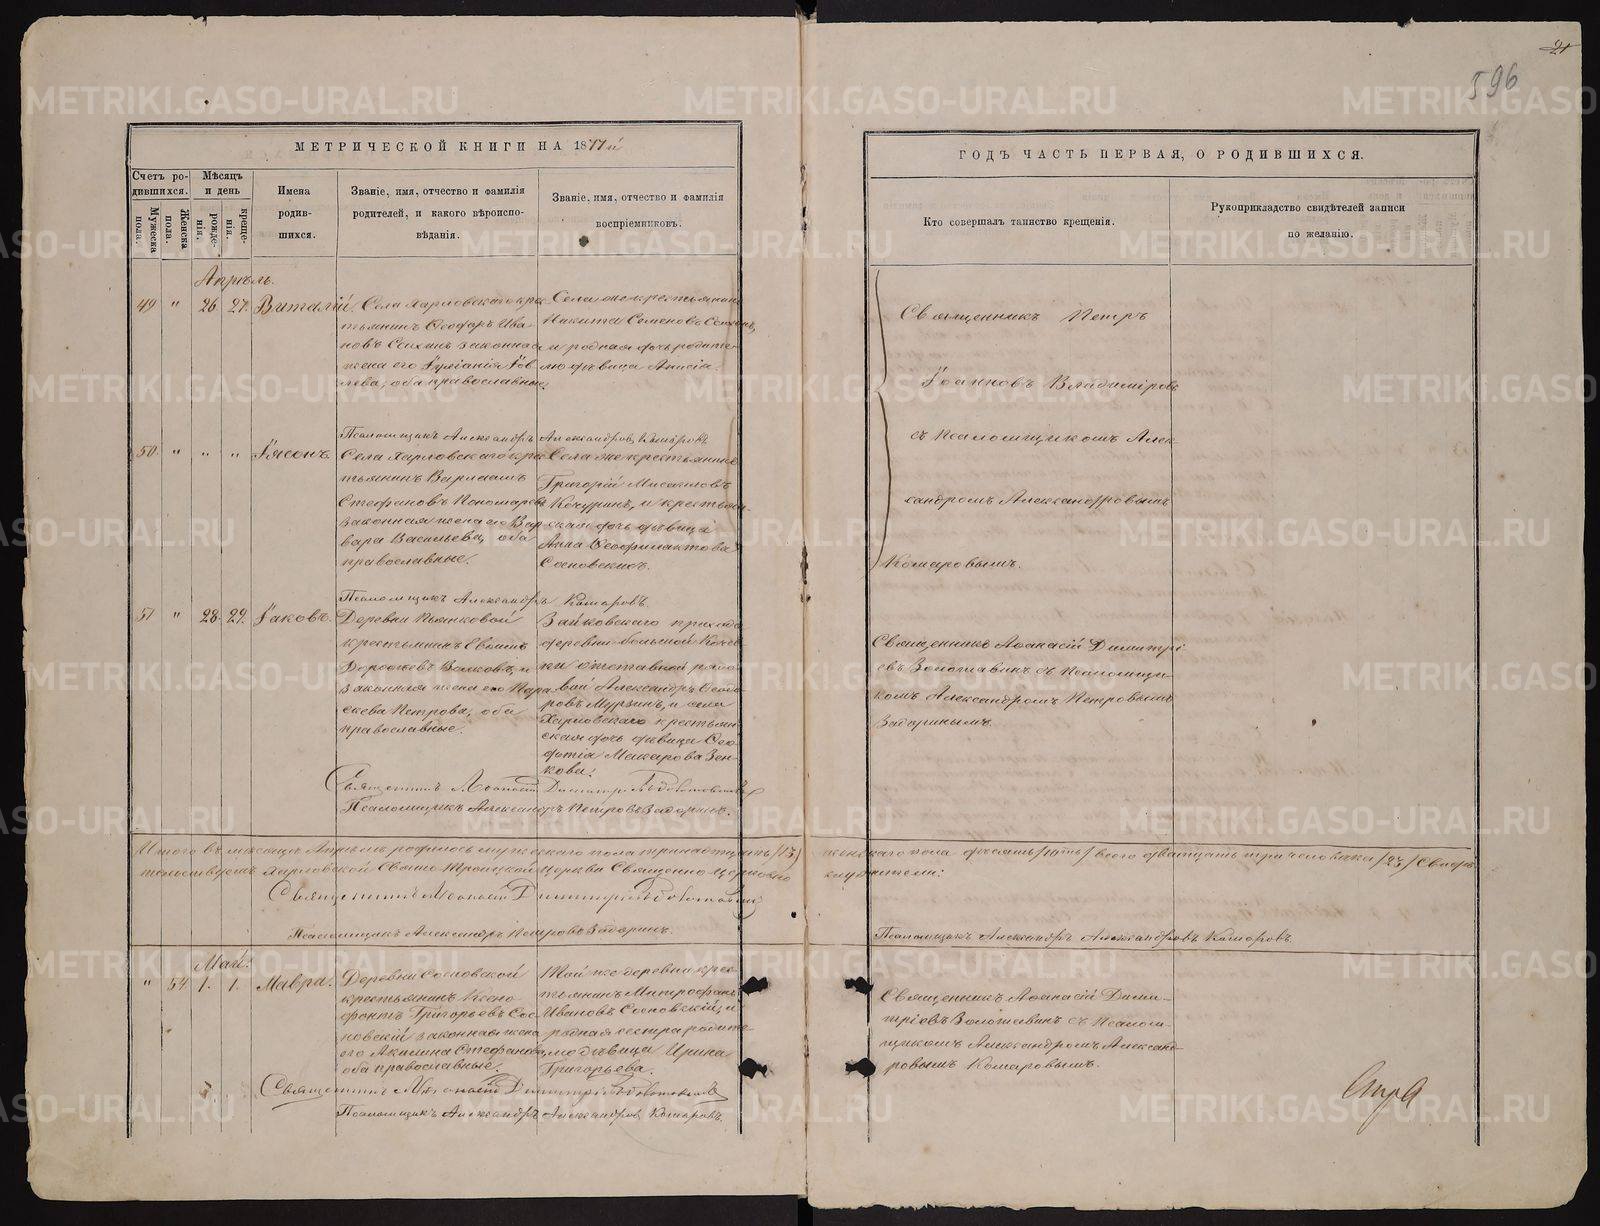 21
596
МЕТРИЧЕСКОЙ КНИГИ НА 1877й
ГОДЪ ЧАСТЬ ПЕРВАЯ, О РОДИВШИХСЯ.
Счетъ родившихся.
Мужеска пола.
Женска пола.
Мѣсяцъ и день
рожденія.
крещенія.
Имена
родив-
шихся.
Званіе, имя, отчество и фамилія
родителей, и какого вѣроиспо-
вѣданія.
Званіе, имя, отчество и фамилія
воспріемниковъ.
Кто совершалъ таинство крещенія.
Рукоприкладство свидѣтелей записи
по желанію.
Апрѣль.
49 " 26 27. Виталій.
Села Харловскаго кре-
стьянинъ Ѳеодоръ Ива-
новъ законная
жена его Іов-
лева, оба православные.
Села же крестьянинъ
Никита Семеновъ
и родная дочь родите-
лю дѣвица Анисія.
Священникъ Петръ
Іоанновъ Владиміровъ
съ Псаломщикомъ Алек-
сандромъ Александровымъ
Комаровымъ.
Псаломщикъ Александръ Александровъ Комаровъ
50. " " " Іясонъ.
Села Харловскаго кре-
стьянинъ Варлаамъ
Стефановъ Пономаревъ
законная жена его Вар-
вара Васильева, оба
православные.
Села же крестьянинъ
Григорій
Кочуринъ, и крестьян-
ская дочь дѣвица
Анна Ѳеофилактова
Сосновскихъ.
Псаломщикъ Александръ Комаровъ.
51 " 28. 29. Іаковъ.
Деревни Пьянковой
крестьянинъ
Дороѳеевъ и
законная жена его Пара-
скева Петрова, оба
православные.
Зайковскаго прихода
деревни большой
отставной рядо-
вой Александръ Ѳеодо-
ровъ Мурзинъ, и села
Харловскаго крестьян-
ская дочь дѣвица
Макарова Зен-
кова.
Священникъ Аѳанасій Димитрі-
евъ Золотавинъ съ Псаломщи-
комъ Александромъ Петровымъ
Задоринымъ.
Священникъ Аѳанасій Димитріевъ Золотавинъ
Псаломщикъ Александръ Петровъ Задоринъ.
Итого въ мѣсяцѣ Апрѣлѣ родилось мужескаго пола тринадцать /13/ женскаго пола десять /10ть/ всего двадцать три человѣка /23/ Свидѣ-
тельствуемъ Харловской Свято-Троицкой церкви Священно-церковно служители:
Священникъ Аѳанасій Димитріевъ Золотавинъ
Псаломщикъ Александръ Петровъ Задоринъ.
Псаломщикъ Александръ Александровъ Комаровъ.
Май.
" 54 1. 1. Мавра.
Деревни Сосновской
крестьянинъ Ксено-
фонтъ Григорьевъ Сос-
новскій законная жена
его Акилина Стефанова,
оба православные.
Той же деревни крес-
тьянинъ Митрофанъ
Ивановъ Сосновскій, и
родная сестра родите-
лю дѣвица Ирина
Григорьева.
Священникъ Аѳанасій Дими-
тріевъ Золотавинъ съ Псалом-
щикомъ Александромъ Александ-
ровымъ Комаровымъ.
Священникъ Аѳанасій Димитріевъ Золотавинъ
Псаломщикъ Александръ Александровъ Комаровъ.
METRIKI.GASO-URAL.RU